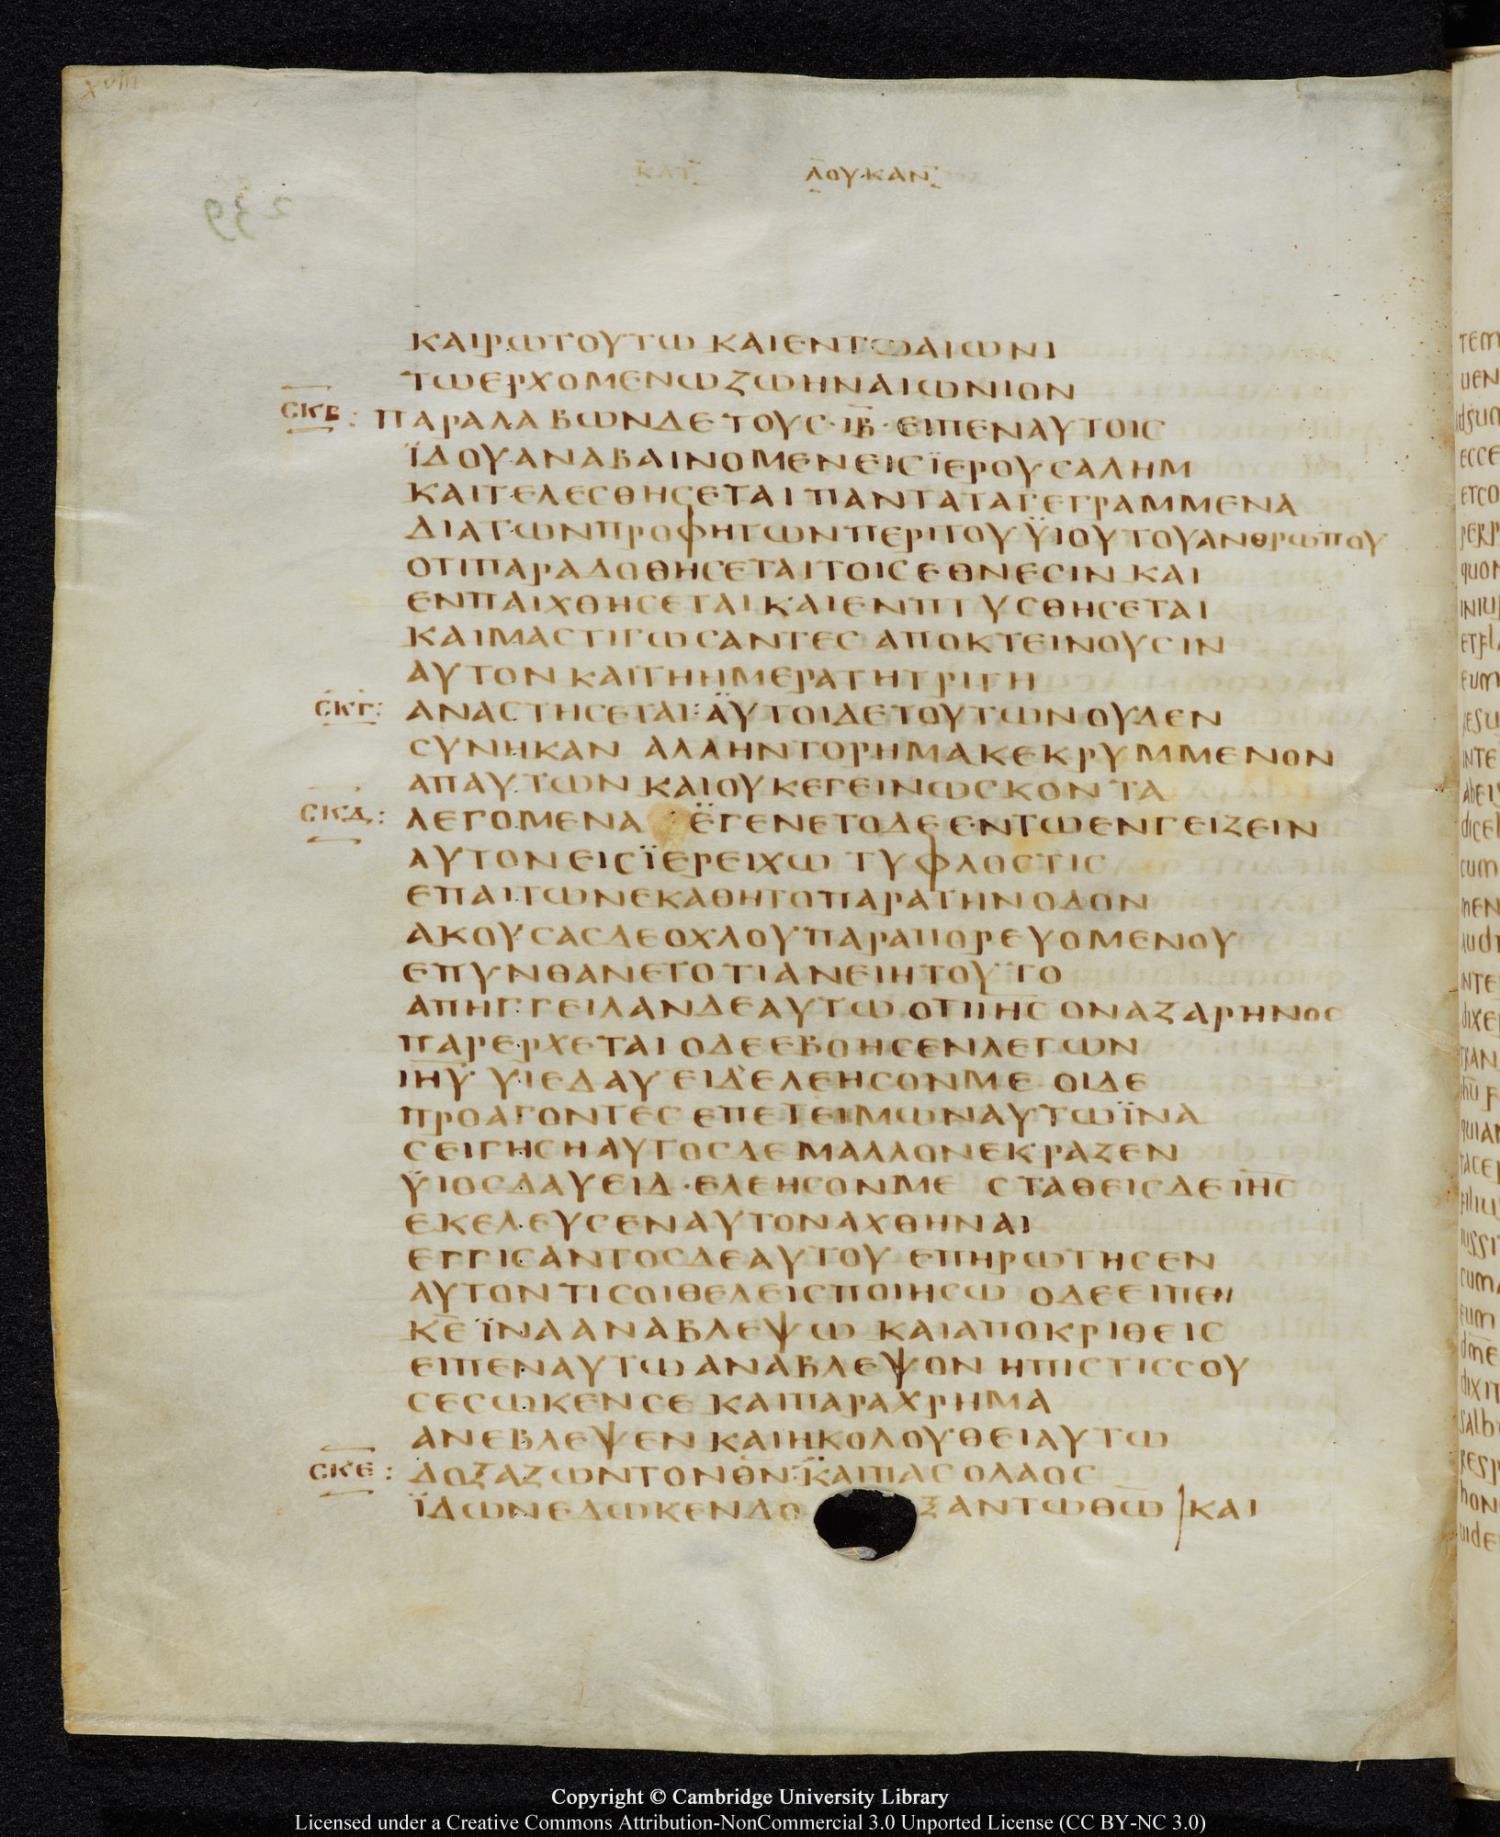 ΚΑΤ ΛΟΥΚΑΝ
239
ΚΑΙΡΩΤΟΥΤΩ ΚΑΙΕΝΤΩΑΙΩΝΙ
ΤΩΕΡΧΟΜΕΝΩΖΩΗΝΑΙΩΝΙΟΝ
ΣΚΒ: ΠΑΡΑΛΑΒΩΝΔΕΤΟΥϹ·ΙΒ̅·ΕΙΠΕΝΑΥΤΟΙϹ
ΪΔΟΥΑΝΑΒΑΙΝΟΜΕΝΕΙϹΪΕΡΟΥϹΑΛΗΜ
ΚΑΙΤΕΛΕϹΘΗϹΕΤΑΙΠΑΝΤΑΤΑΓΕΓΡΑΜΜΕΝΑ
ΔΙΑΤΩΝΠΡΟΦΗΤΩΝΠΕΡΙΤΟΥΫΙΟΥΤΟΥΑΝΘΡΩΠΟΥ
ΟΤΙΠΑΡΑΔΟΘΗϹΕΤΑΙΤΟΙϹΕΘΝΕϹΙΝ ΚΑΙ
ΕΝΠΑΙΧΘΗϹΕΤΑΙΚΑΙΕΝΠΤΥϹΘΗϹΕΤΑΙ
ΚΑΙΜΑϹΤΙΓΩϹΑΝΤΕϹ ΑΠΟΚΤΕΙΝΟΥϹΙΝ
ΑΥΤΟΝΚΑΙΤΗΗΜΕΡΑΤΗΤΡΙΤΗ
ϹΚΓ: ΑΝΑϹΤΗϹΕΤΑΙ:ΑΥΤΟΙΔΕΤΟΥΤΩΝΟΥΔΕΝ
ϹΥΝΗΚΑΝ ΑΛΛΗΝΤΟΡΗΜΑΚΕΚΡΥΜΜΕΝΟΝ
ΑΠΑΥΤΩΝ ΚΑΙΟΥΚΕΓΕΙΝΩϹΚΟΝΤΑ
ϹΚΔ: ΛΕΓΟΜΕΝΑ :ΕΓΕΝΕΤΟΔΕΕΝΤΩΕΝΓΕΙΖΕΙΝ
ΑΥΤΟΝΕΙϹΪΕΡΕΙΧΩ ΤΥΦΛΟϹΤΙϹ
ΕΠΑΙΤΩΝΕΚΑΘΗΤΟΠΑΡΑΤΗΝΟΔΟΝ
ΑΚΟΥϹΑϹΔΕΟΧΛΟΥΠΑΡΑΠΟΡΕΥΟΜΕΝΟΥ
ΕΠΥΝΘΑΝΕΤΟΤΙΑΝΕΙΗΤΟΥΤΟ
ΑΠΗΓΓΕΙΛΑΝΔΕΑΥΤΩ ΟΤΙΙΗϹ̅ΟΝΑΖΑΡΗΝΟϹ
ΠΑΡΕΡΧΕΤΑΙ ΟΔΕΕΒΟΗϹΕΝΛΕΓΩΝ
ΙΗΥ̅ ΥΙΕΔΑΥΕΙΔΕΛΕΗϹΟΝΜΕ ΟΙΔΕ
ΠΡΟΑΓΟΝΤΕϹΕΠΕΤΕΙΜΩΝΑΥΤΩΪΝΑ
ϹΕΙΓΗϹΗΑΥΤΟϹΔΕΜΑΛΛΟΝΕΚΡΑΖΕΝ
ΫΙΟϹΔΑΥΕΙΔ·ΕΛΕΗϹΟΝΜΕ ϹΤΑΘΕΙϹΔΕΙΗϹ̅
ΕΚΕΛΕΥϹΕΝΑΥΤΟΝΑΧΘΗΝΑΙ
ΕΓΓΙϹΑΝΤΟϹΔΕΑΥΤΟΥ ΕΠΗΡΩΤΗϹΕΝ
ΑΥΤΟΝΤΙϹΟΙΘΕΛΕΙϹΠΟΙΗϹΩ ΟΔΕΕΙΠΕΝ
ΚΕ̅ΪΝΑΑΝΑΒΛΕΨΩ ΚΑΙΑΠΟΚΡΙΘΕΙϹ
ΕΙΠΕΝΑΥΤΩΑΝΑΒΛΕΨΟΝ ΗΠΙϹΤΙϹϹΟΥ
ϹΕϹΩΚΕΝϹΕ ΚΑΙΠΑΡΑΧΡΗΜΑ
ΑΝΕΒΛΕΨΕΝ ΚΑΙΗΚΟΛΟΥΘΕΙΑΥΤΩ
ϹΚΕ: ΔΟΞΑΖΩΝΤΟΝΘΝ̅:ΚΑΙΠΑϹΟΛΑΟϹ
ΪΔΩΝΕΔΩΚΕΝΔΟ ΞΑΝΤΩΘΩ̅ ΚΑΙ
Copyright © Cambridge University Library
Licensed under a Creative Commons Attribution-NonCommercial 3.0 Unported License (CC BY-NC 3.0)